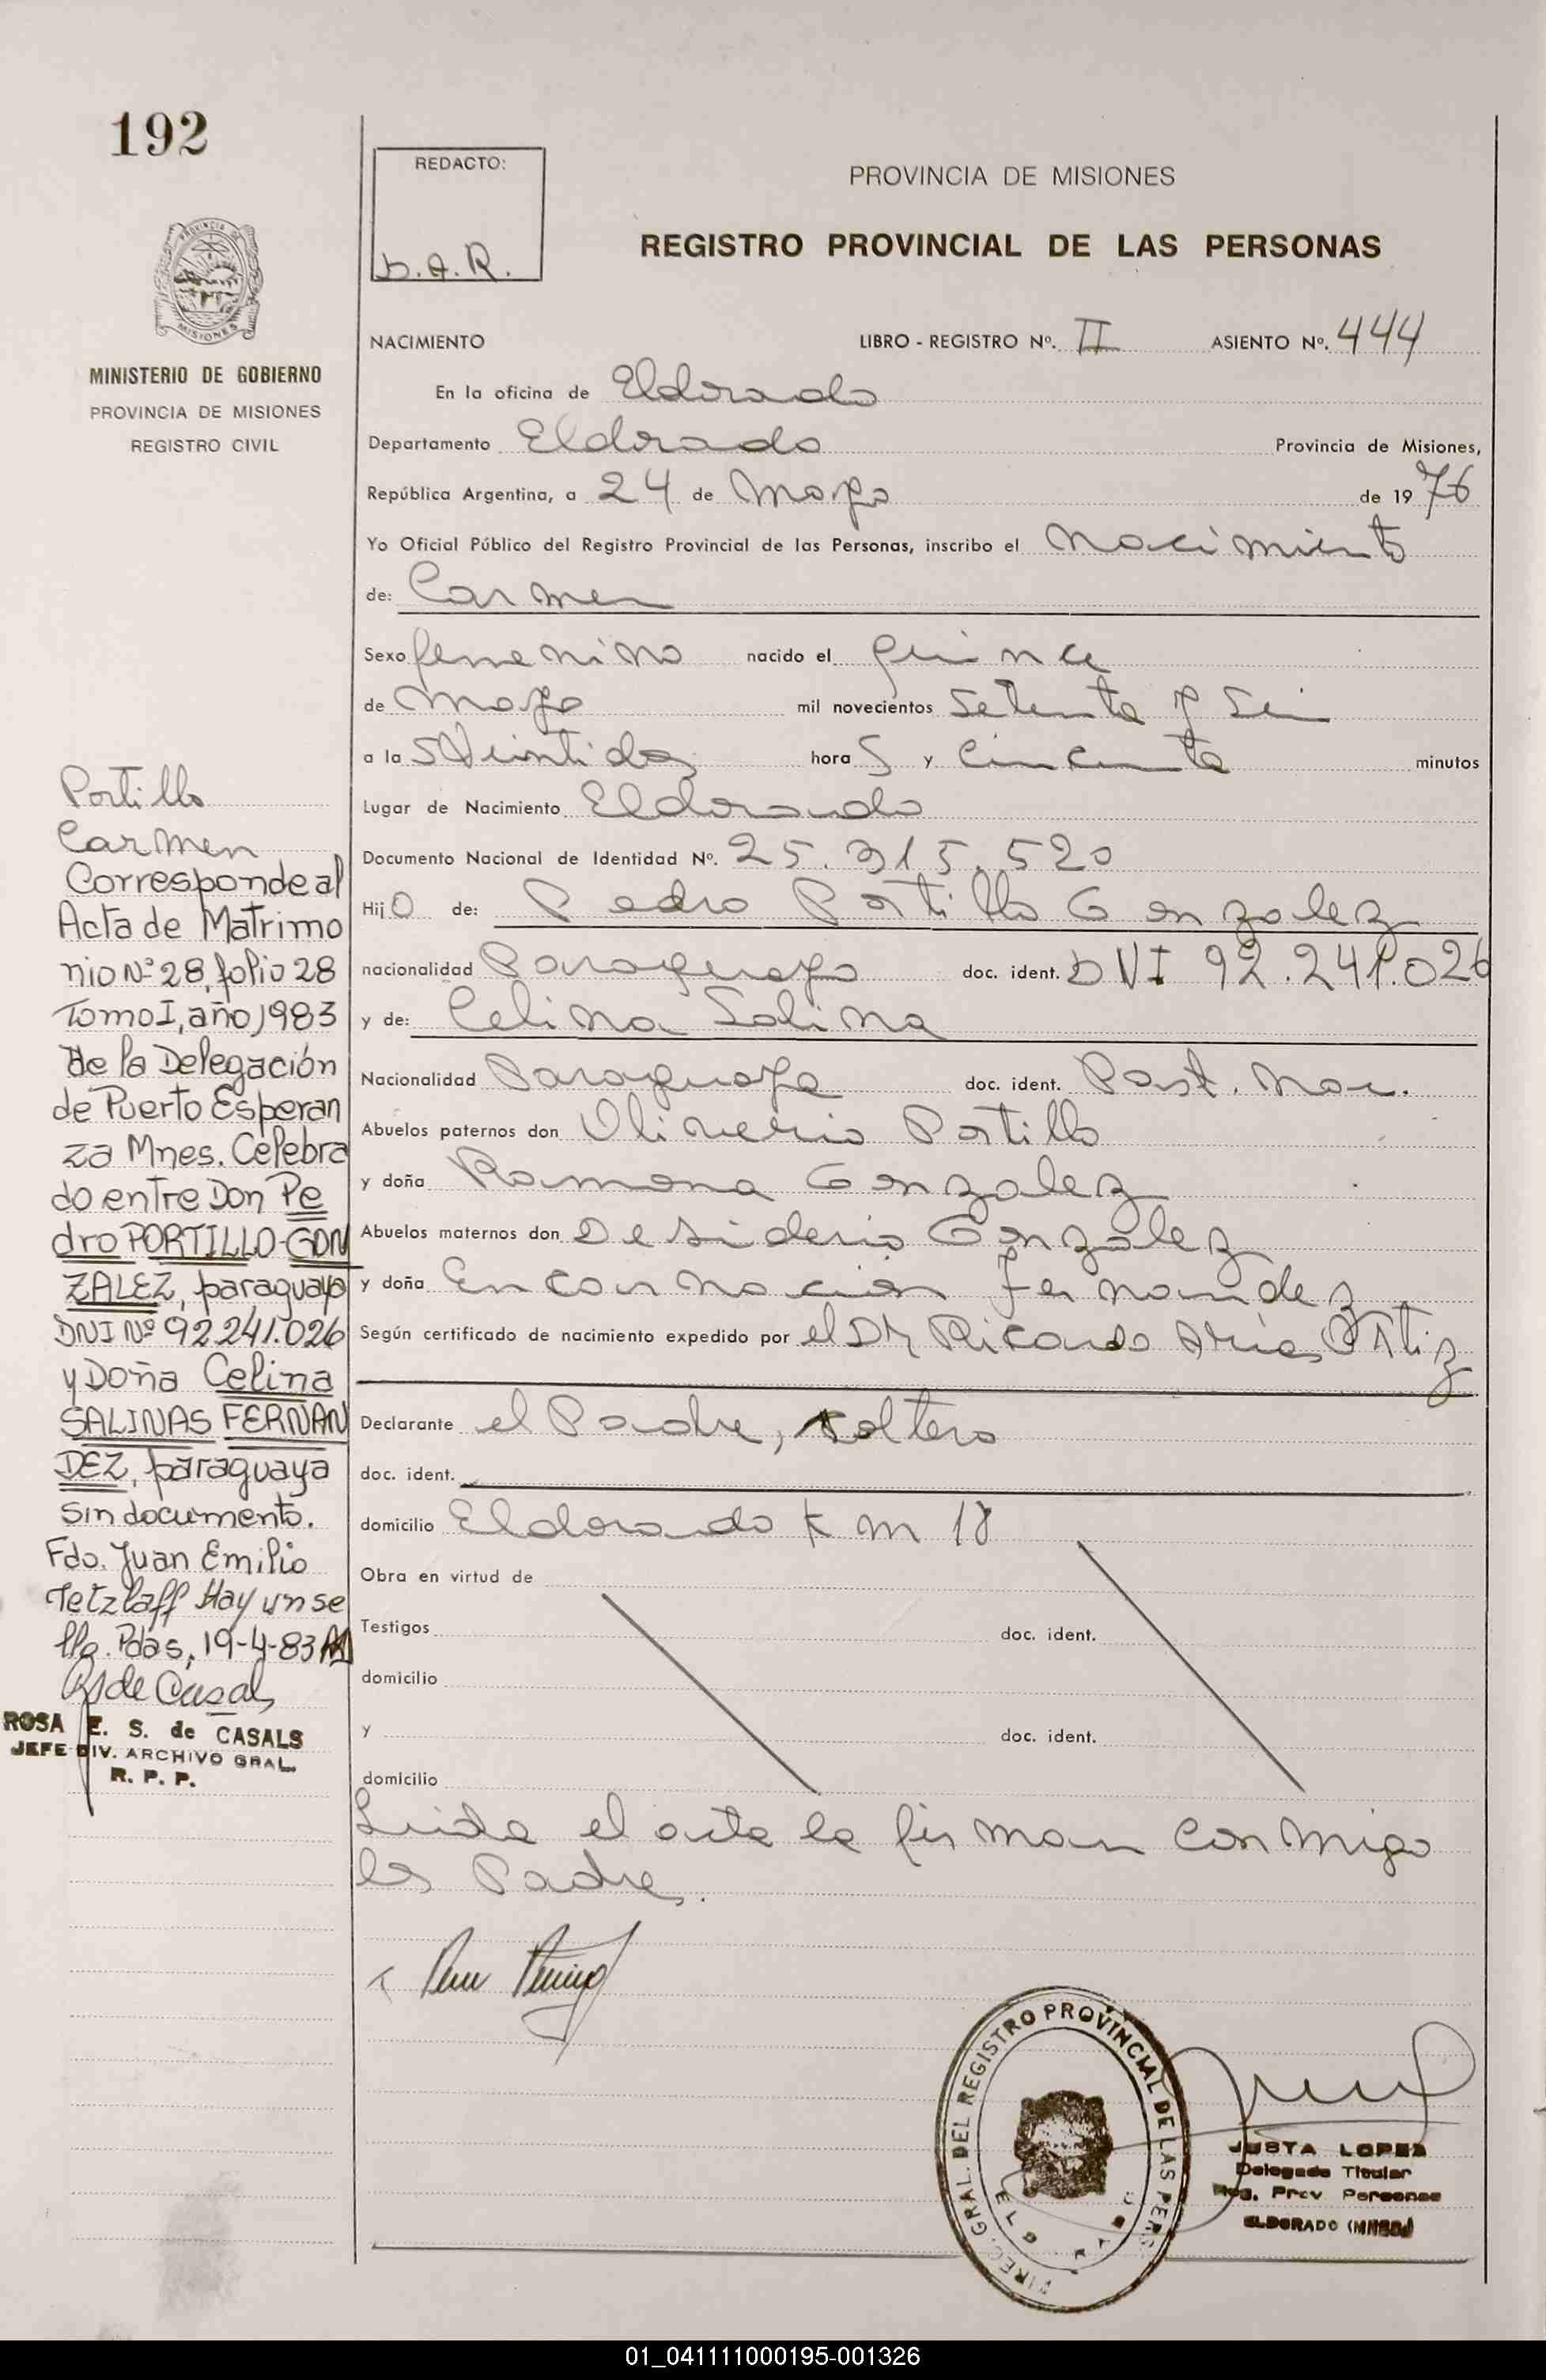 192
REDACTO:
D.A.R.
PROVINCIA DE MISIONES
REGISTRO PROVINCIAL DE LAS PERSONAS
PROVINCIA DE
MISIONES
MINISTERIO DE GOBIERNO
PROVINCIA DE MISIONES
REGISTRO CIVIL
NACIMIENTO LIBRO - REGISTRO Nº. II ASIENTO Nº. 444
En la oficina de Eldorado
Departamento Eldorado Provincia de Misiones,
República Argentina, a 24 de Mayo de 1976
Yo Oficial Público del Registro Provincial de las Personas, inscribo el nacimiento
de: Carmen
Sexo femenino nacido el quince
de Mayo mil novecientos setenta y seis
a las veintidos horas y cincuenta minutos
Lugar de Nacimiento Eldorado
Documento Nacional de Identidad Nº. 25.315.520
Hijo de: Pedro Portillo Gonzalez
nacionalidad Paraguayo doc. ident. DNI 92.241.026
y de: Celina Salina
Nacionalidad Paraguaya doc. ident. Part. Nac.
Abuelos paternos don Oliverio Portillo
y doña Ramona Gonzalez
Abuelos maternos don Desiderio Gonzalez
y doña Encarnacion Fernandez
Según certificado de nacimiento expedido por el Dr Ricardo Arias Ortiz
Declarante el Padre, soltero
doc. ident.
domicilio Eldorado Km 18
Obra en virtud de
Testigos doc. ident.
domicilio
y doc. ident.
domicilio
Leida el acta la firman conmigo
los Padres.
Portillo
Carmen
Corresponde al
Acta de Matrimo
nio Nº 28, folio 28
Tomo I, año 1983
de la Delegación
de Puerto Esperan
za Mnes. Celebra
do entre Don Pe
dro PORTILLO-GON
ZALEZ, paraguayo
DNI Nº 92.241.026
y Doña Celina
SALINAS FERNAN
DEZ, paraguaya
sin documento.
Fdo. Juan Emilio
Tetzlaff Hay un se
llo. Pdas, 19-4-83
R de Casals
ROSA E. S. de CASALS
JEFE DIV. ARCHIVO GRAL.
R. P. P.
DIREC. GRAL. DEL REGISTRO PROVINCIAL DE LAS PERS.
JUSTA LOPEZ
Delegada Titular
Reg. Prov Personas
ELDORADO (MNES.)
01_041111000195-001326